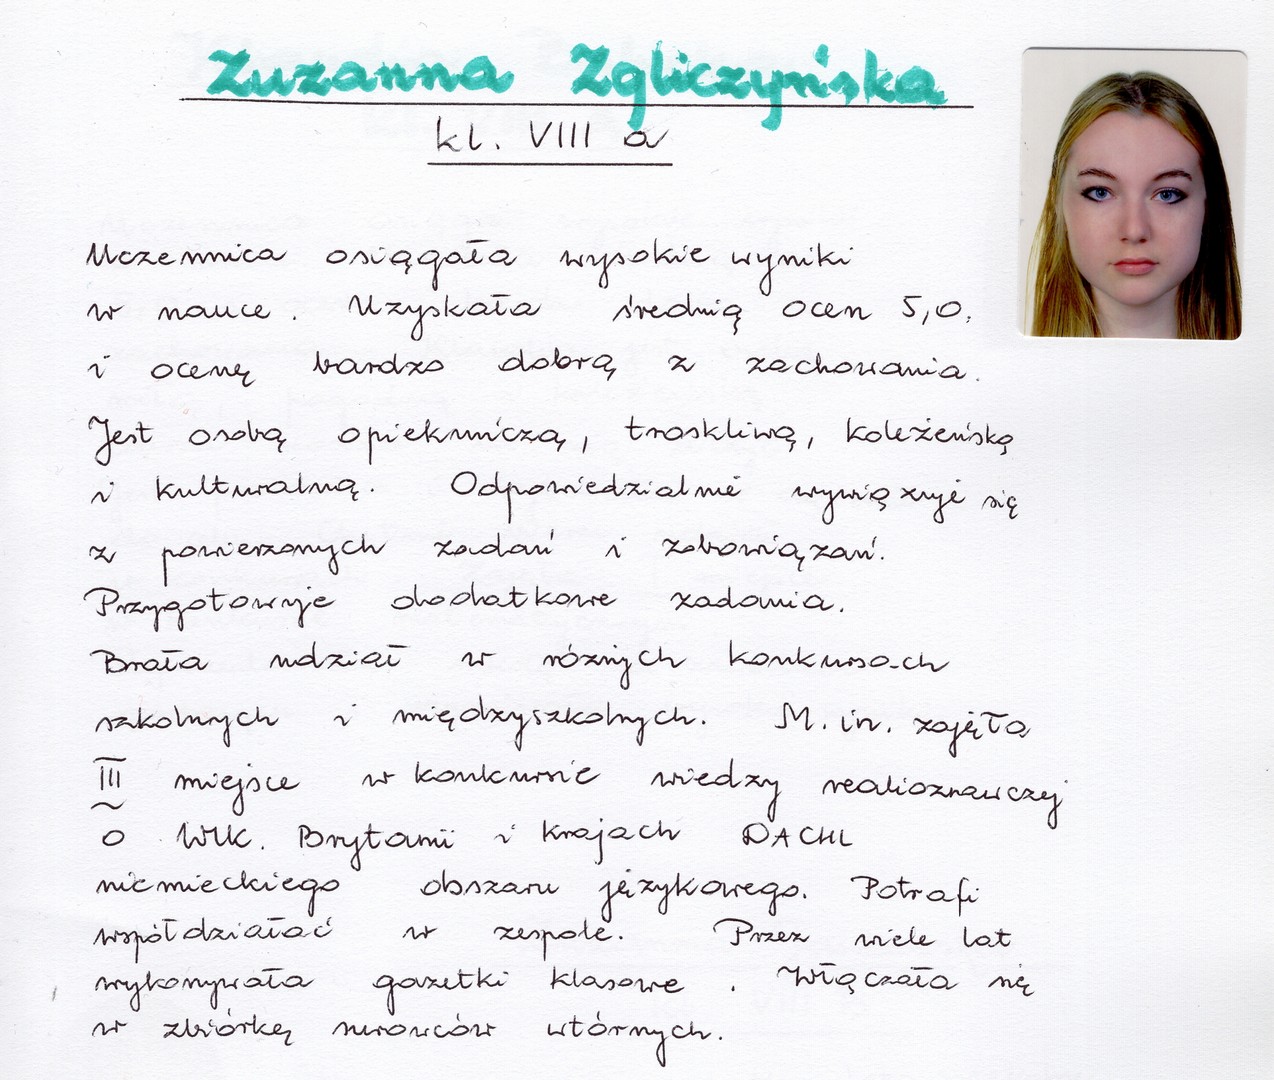 Zuzanna Zgliczyńska
kl. VIII a
Uczennica osiągała wysokie wyniki
w nauce. Uzyskała średnią ocen 5,0.
i ocenę bardzo dobrą z zachowania.
Jest osobą opiekuńczą, troskliwą, koleżeńską
i kulturalną. Odpowiedzialnie wywiązuje się
z powierzonych zadań i zobowiązań.
Przygotowuje dodatkowe zadania.
Brała udział w różnych konkursach
szkolnych i międzyszkolnych. M. in. zajęła
III miejsce w konkursie wiedzy realioznawczej
o Wlk. Brytanii i krajach DACHL
niemieckiego obszaru językowego. Potrafi
współdziałać w zespole. Przez wiele lat
wykonywała gazetki klasowe. Włączała się
w zbiórkę surowców wtórnych.